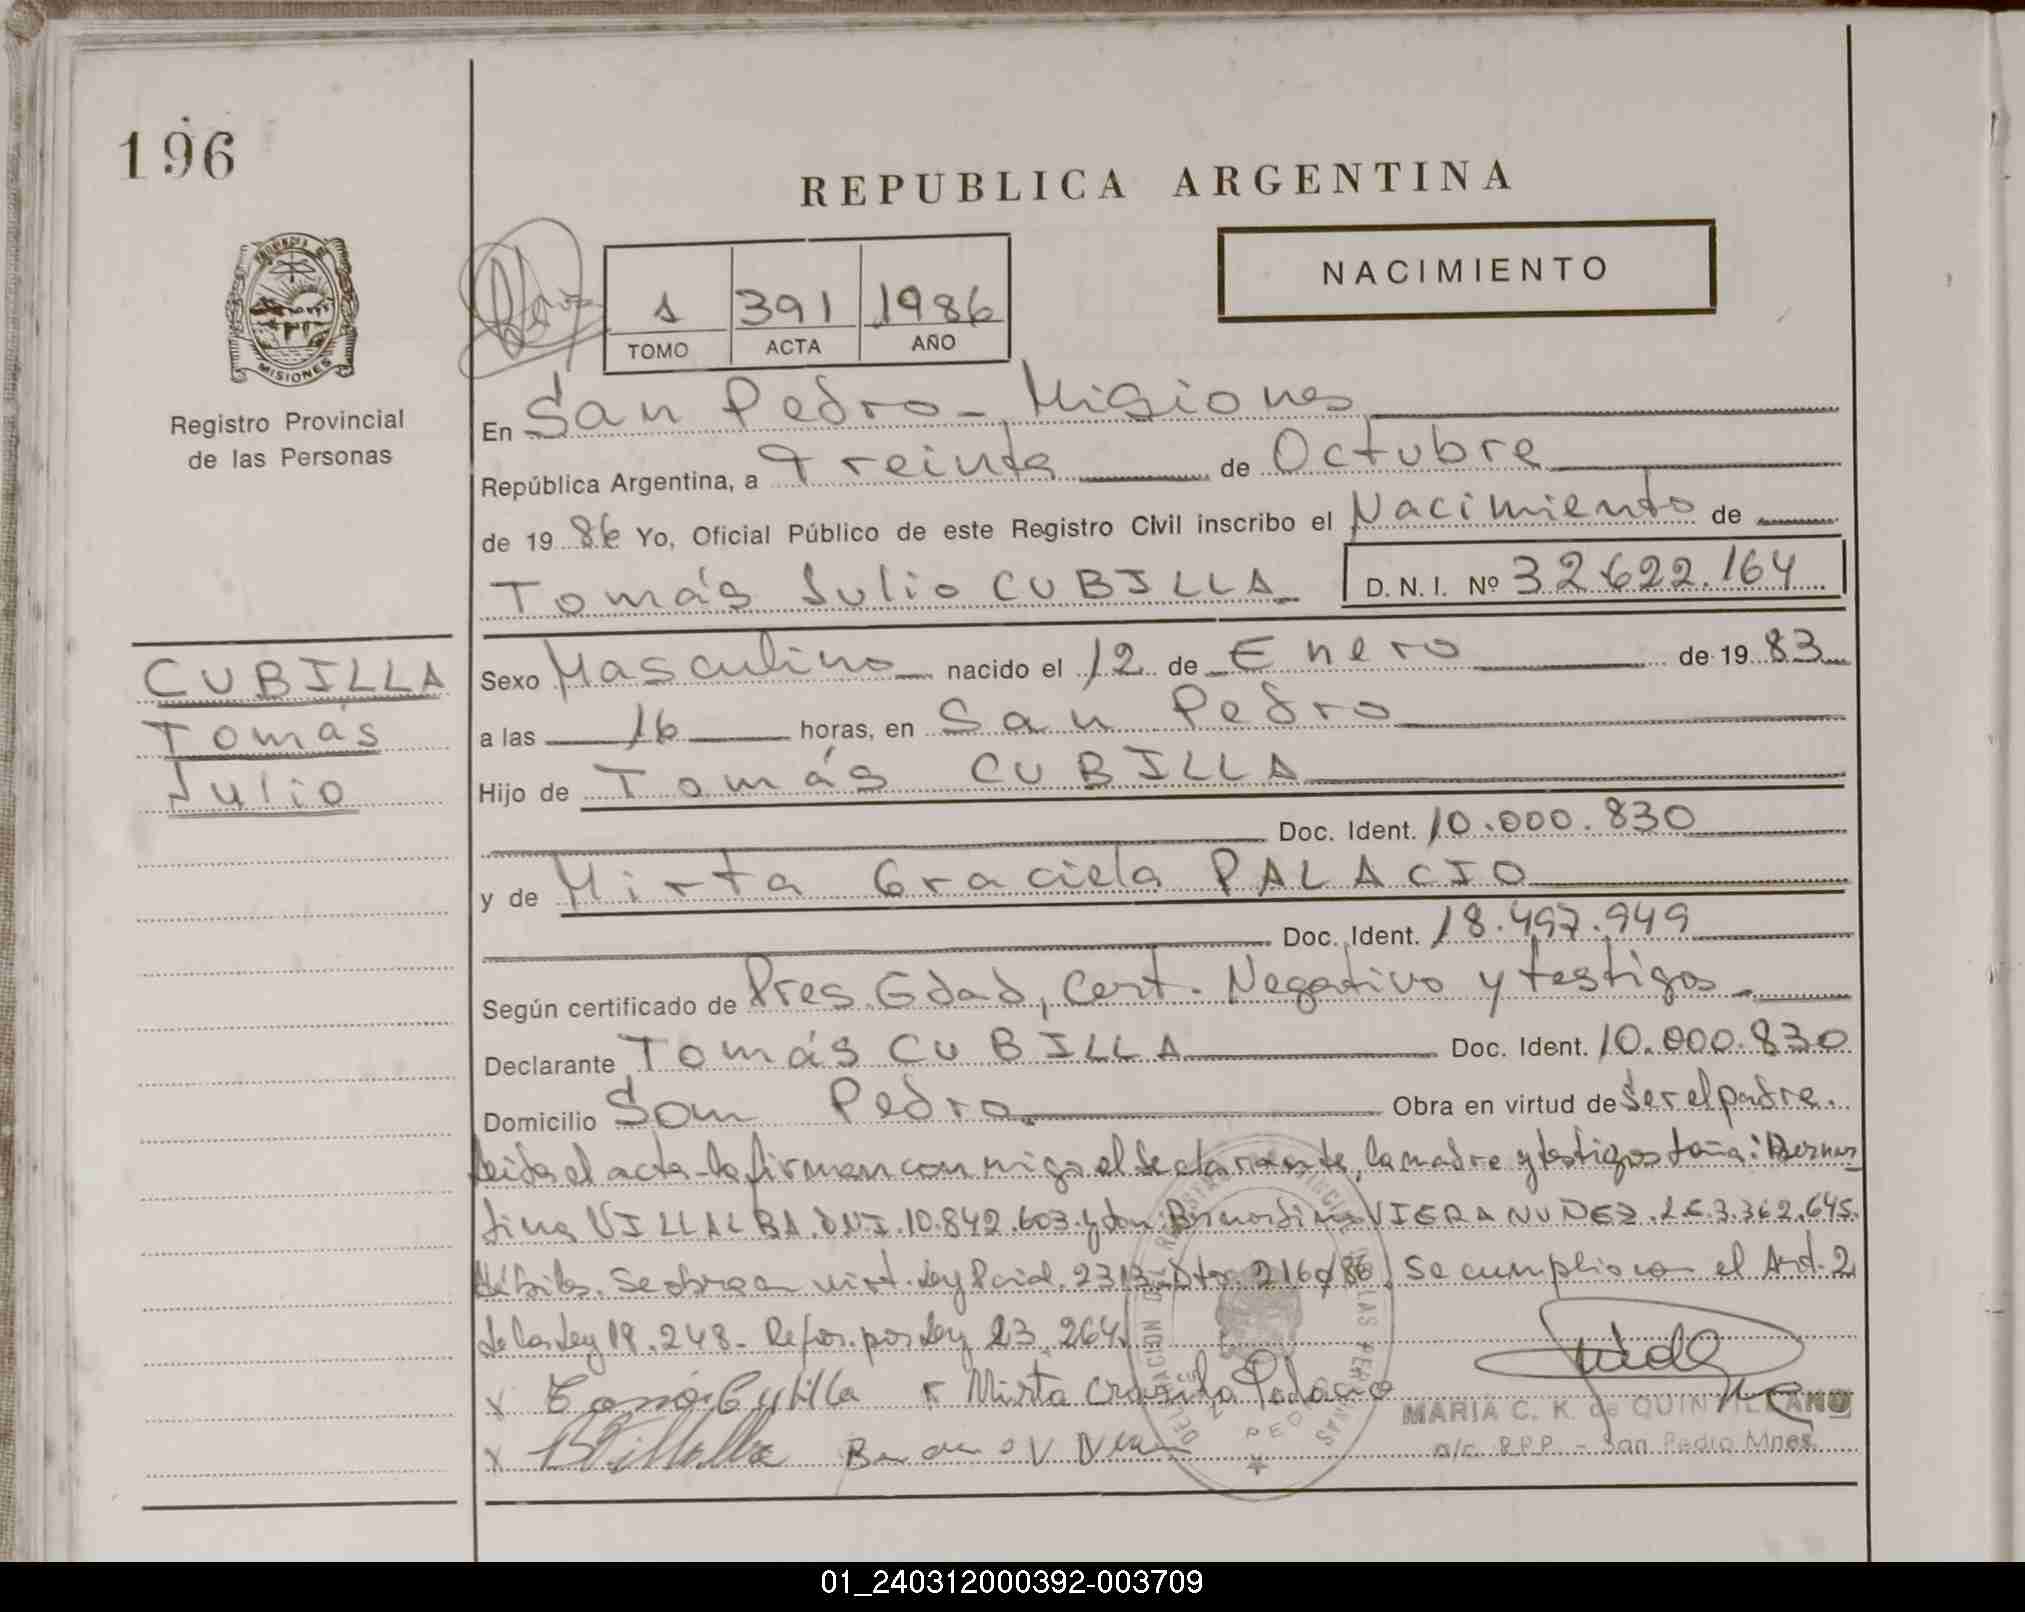 196
REPUBLICA ARGENTINA
NACIMIENTO
1 391 1986
TOMO ACTA AÑO
MISIONES
Registro Provincial
de las Personas
En San Pedro - Misiones
República Argentina, a Treinta de Octubre
de 1986 Yo, Oficial Público de este Registro Civil inscribo el Nacimiento de
Tomás Julio CUBILLA D. N. I. Nº 32.622.164
CUBILLA
Tomás
Julio
Sexo Masculino nacido el 12 de Enero de 1983
a las 16 horas, en San Pedro
Hijo de Tomás CUBILLA
Doc. Ident. 10.000.830
y de Mirta Graciela PALACIO
Doc. Ident. 18.497.949
Según certificado de Pres. Edad, Cert. Negativo y testigos
Declarante Tomás CUBILLA Doc. Ident. 10.000.830
Domicilio San Pedro. Obra en virtud de ser el padre.
Leida el acta la firman conmigo el declarante, la madre y testigos doña: Bernar
dina VILLALBA. DNI. 10.842.603 y don Bernardino VIERA NUÑEZ. L.E. 3.362.645.
Se obra en virt. Ley Pcial. 2313 Dto. 2160/86. Se cumplio con el Art. 2
de la Ley 18.248. Refor. por Ley 23.264.
x Tomás Cubilla x Mirta Graciela Palacio
x BVillalba
MARIA C. K. de QUINTILLANO
a/c. R.P.P. - San Pedro Mnes.
01_240312000392-003709